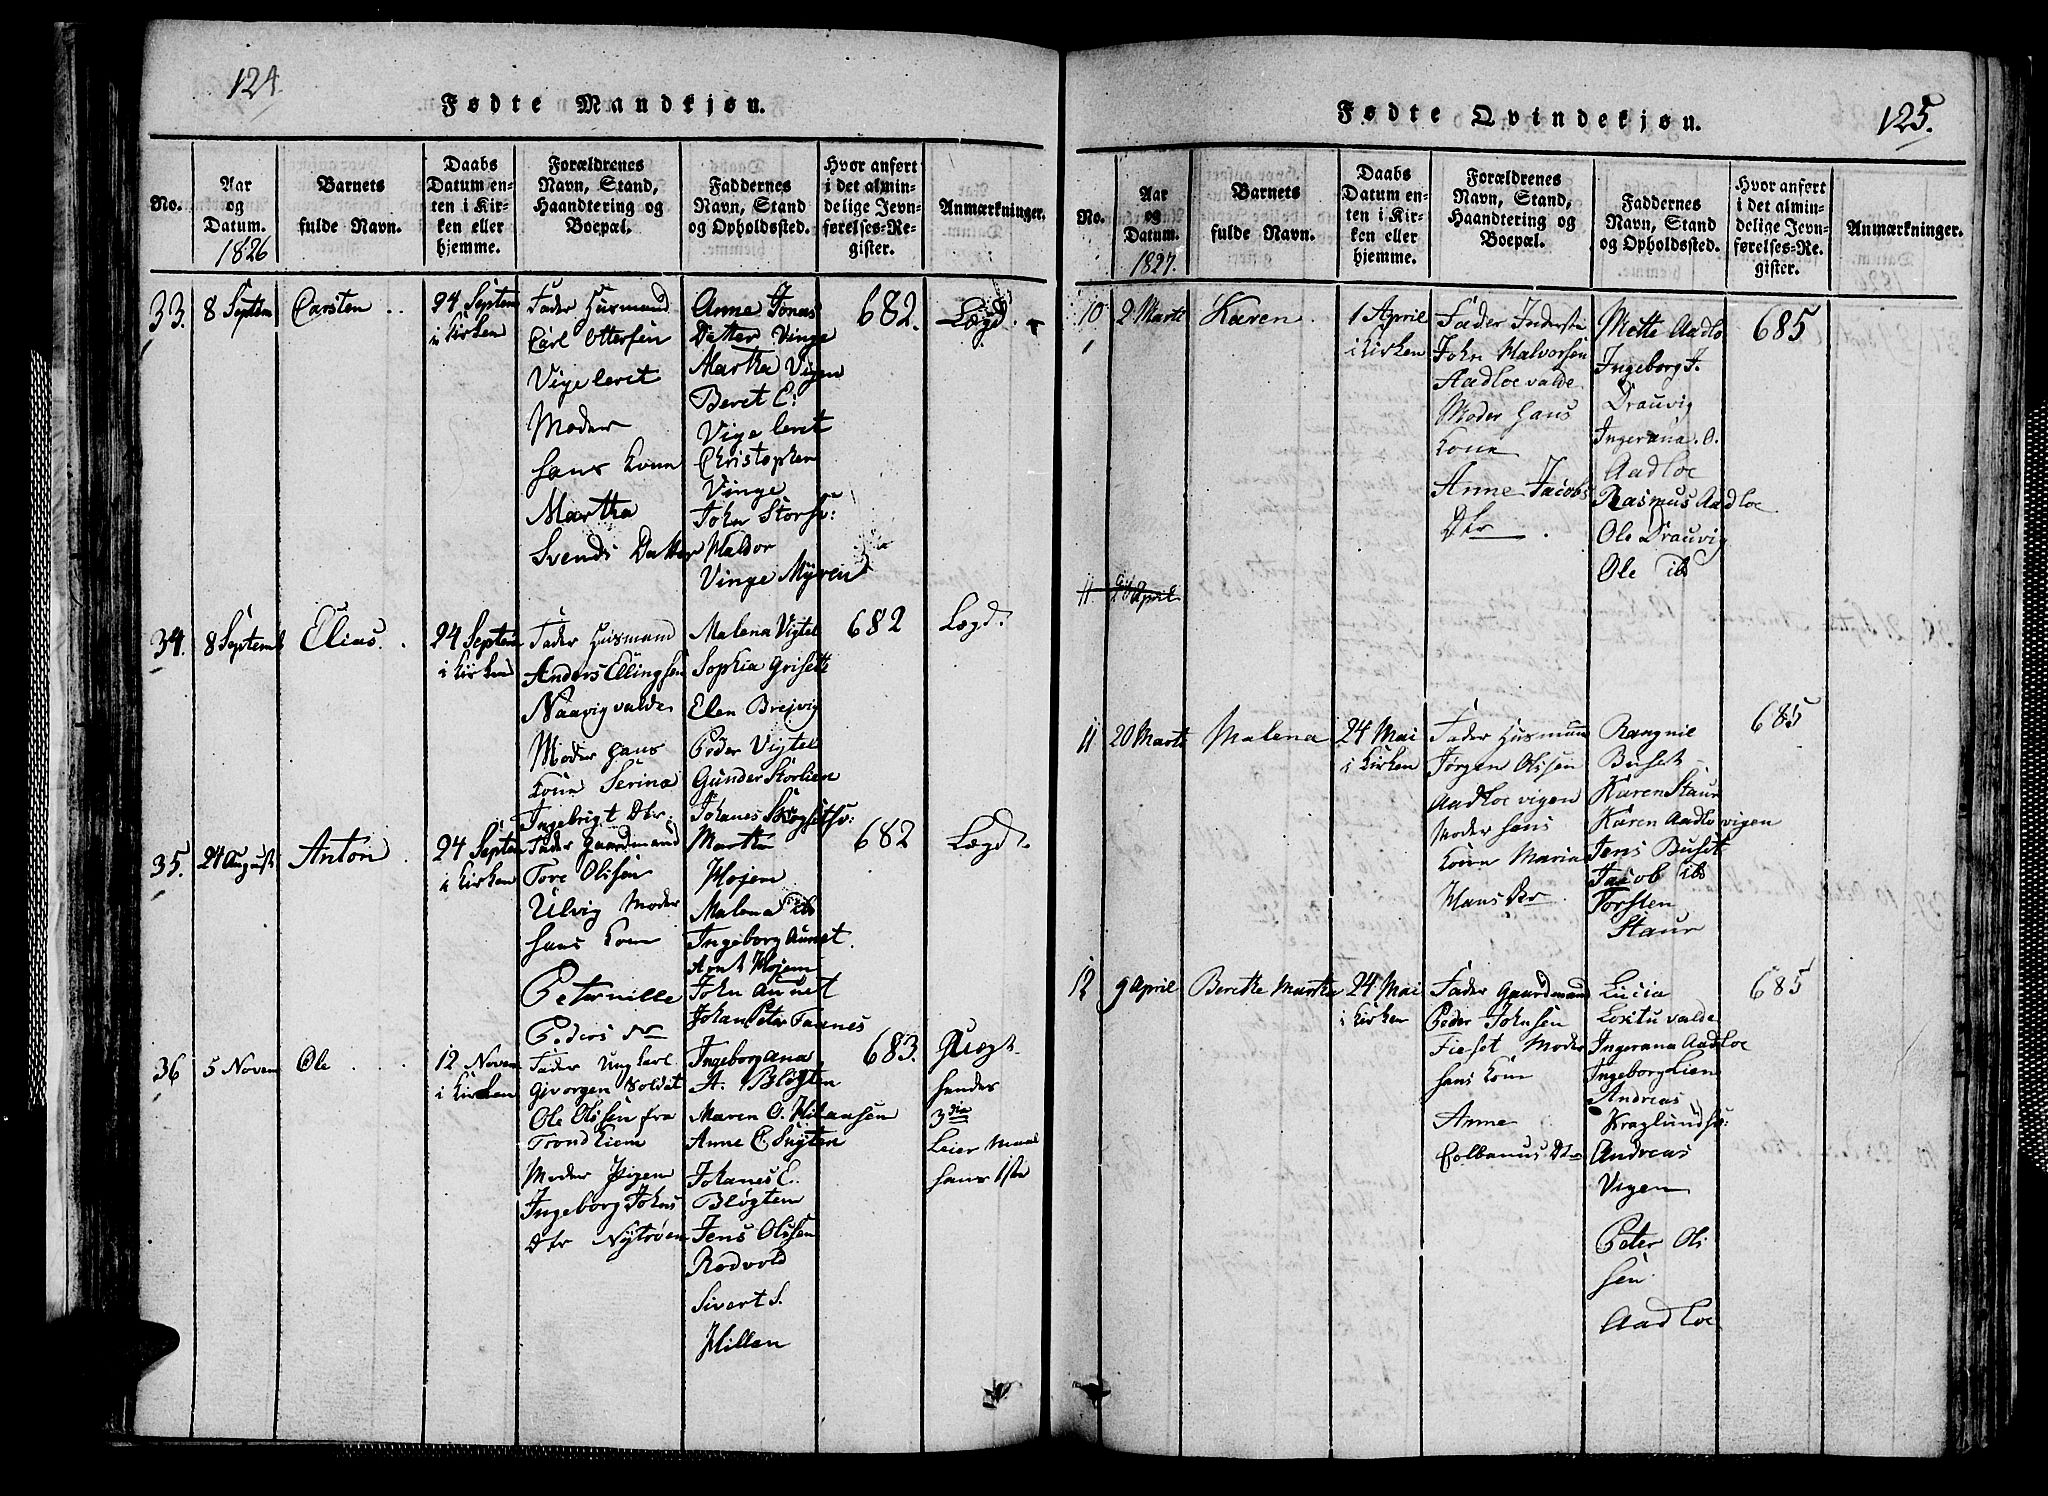 124
Fødte Mandkjøn.
No.
Aar
og
Datum.
1826
Barnets
fulde Navn.
Daabs
Datum en-
ten i Kir-
ken eller
hjemme.
Forældrenes
Navn, Stand,
Haandtering og
Boepæl.
Faddernes
Navn, Stand
og Opholdssted.
Hvor anført
i det almin-
delige Jevn-
førelses-Re-
gister.
Anmærkninger.
33.
8 Septem
Carsten
24 Septem
i Kirken
Fader Huusmand
Carl Ottersen
Vigeleret
Moder
hans Kone
Martha
Svends Datter
Anne Jonas
Datter Vinge
Martha Vigen
Beret C:
Vigeleret
Christopher
Vinge
John Storsv:
Haldor
Vinge Myren
682.
Lægd.
34.
8 Septemb
Elias.
24 Septem
i Kirken
Fader Huusmand
Anders Ellingsen
Naavigvalde
Moder hans
Kone Serina
Ingebrigt Dtr.
Malena Vigtel
Sophia Grisett
Elen Brejvig
Peder Vigtel
Gunder Storlien
Johanes Skogsetsv:
682
Lægd.
35.
24 August
Anton
24 Septem
i Kirken
Fader Gaardmand
Tore Olisen
Ulvig Moder
hans Kone
Peternille
Peders Dtr
Martha
Hojem
Malena ibs
Ingeborg Aunet
Arnt Hojem
John Aunet
Johan Peter Taanes
682
Lægd.
36
5 Novem
Ole
12 Novem
i Kirken
Fader Ungkarl
Givorgen Soldat
Ole Olisen fra
Trondhiem
Moder Pigen
Ingeborg Johns
Dtr Nytrøen
Ingeborgana
A. Bløgten
Maren O. Hilaasen
Anne E Snijten
Johanes E.
Bløgten
Jens Olisen
Rodvold
Sivert S.
Hillan
683.
hendes
3die
Leiermaal
hans 1ste
Fødte Qvindekjøn.
125.
No.
Aar
og
Datum.
1827.
Barnets
fulde Navn.
Daabs
Datum en-
ten i Kir-
ken eller
hjemme.
Forældrenes
Navn, Stand,
Haandtering og
Boepæl.
Faddernes
Navn, Stand
og Opholdssted.
Hvor anført
i det almin-
delige Jevn-
førelses-Re-
gister.
Anmærkninger.
10
2 Marti
Karen
1 April
i Kirken
Fader Inderste
John Halvorsen
Aadloevalde
Moder hans
Kone
Anne Jacobs
Dtr
Mette Aadlo
Ingeborg J.
Drauvig
Ingerana. O.
Aadloe
Rasmus Aadloe
Ole Drauvig
Ole ibs
685
11
9 April
11
20 Marti
Malena
24 Mai
i Kirken
Fader Husmand
Jørgen Olisen
Aadloevigen
Moder hans
Kone Maria
Hans Dtr
Rangnil
Buset
Karen Staur
Karen Aadlovigen
Jens Buset
Jacob ibs
Torsten
Staur
685
12
9 April
Berethe Martha
24 Mai
i Kirken
Fader Gaardmand
Peder Johnsen
Fieset Moder
hans Kone
Anne
Colbanus Dtr
Lucia
Loxtuvalde
Ingerana Aadloe
Ingeborg Lien
Andreas
Kraglundsv:
Andreas
Vigen
Peter Oli
sen
Aadloe
685